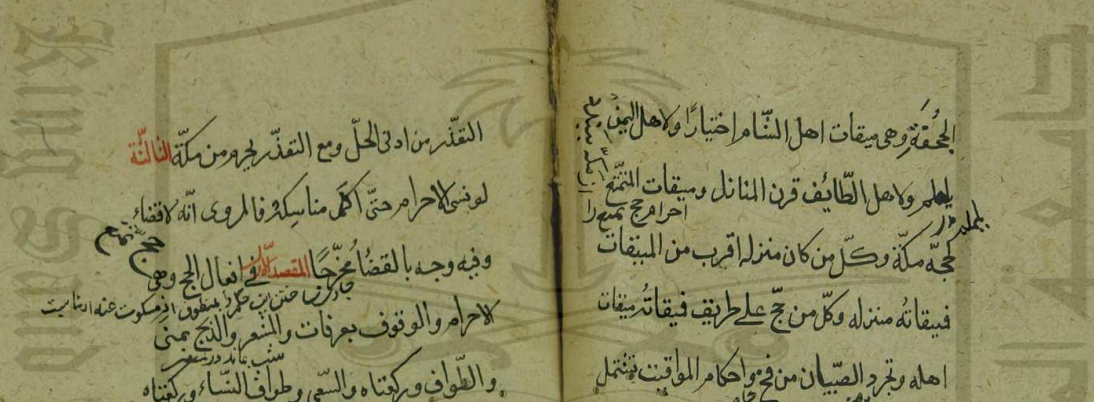 الجحفة وهي ميقات اهل الشام اختيارًا ولاهل اليمن
يلملم ولاهل الطّائف قرن المنازل وميقات المتمتّع
احرام حج تمتع را
لحجّه مكّة وكلّ من كان منزله اقرب من الميقات
فميقاتُه منزله وكلّ من حجّ على طريق فميقاتُه ميقات
اهله وتجرد الصبيان من فخ واحكام المواقيت تشتمل
التعذّر من ادنى الحلّ ومع التعذّر يحرم من مكّة الثالثة
لو نسى الاحرام حتّى اكمل مناسكه فالمروى انّه لا قضاء
حج تمتع
وفيه وجه بالقضاء مخرّجًا المقصد الاول في افعال الحج وهى
الاحرام والوقوف بعرفات والمشعر والذبح بمنى
والطّواف وركعتاه والسّعى وطواف النّساء وركعتاه